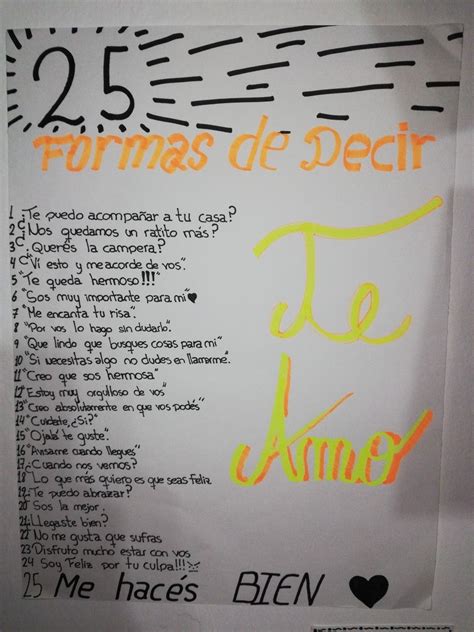 25
Formas de Decir
Te
Amo
1 ¿Te puedo acompañar a tu casa?
2 ¿Nos quedamos un ratito más?
3 ¿Querés la campera?
4 "Vi esto y me acorde de vos".
5 "Te queda hermoso!!!"
6 "Sos muy importante para mi♥
7 "Me encanta tu risa".
8 "Por vos lo hago sin dudarlo".
9 "Que lindo que busques cosas para mi"
10 "Si necesitas algo no dudes en llamarme".
11 "Creo que sos hermosa"
12 "Estoy muy orgulloso de vos"
13 "Creo absolutamente en que vos podés"
14 "Cuidate, ¿Si?"
15 "Ojalá te guste".
16 "Avisame cuando llegues"
17 ¿Cuando nos vemos?
18 Lo que más quiero es que seas feliz
19 ¿Te puedo abrazar?
20 Sos la mejor.
21 ¿Llegaste bien?
22 No me gusta que sufras
23 Disfruto mucho estar con vos
24 Soy Feliz por tu culpa!!!
25 Me hacés BIEN ♥